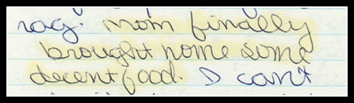 rag. Mom finally
brought home some
decent food. I can't